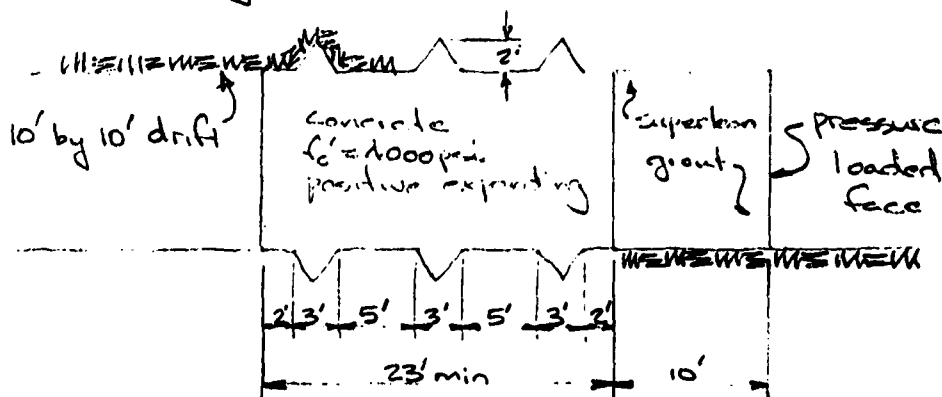 2'
10' by 10' drift
concrete
f'c = 4000 psi
positive expanding
grout
pressure
loaded
face
2' 3' 5' 3' 5' 3' 2'
23' min
10'